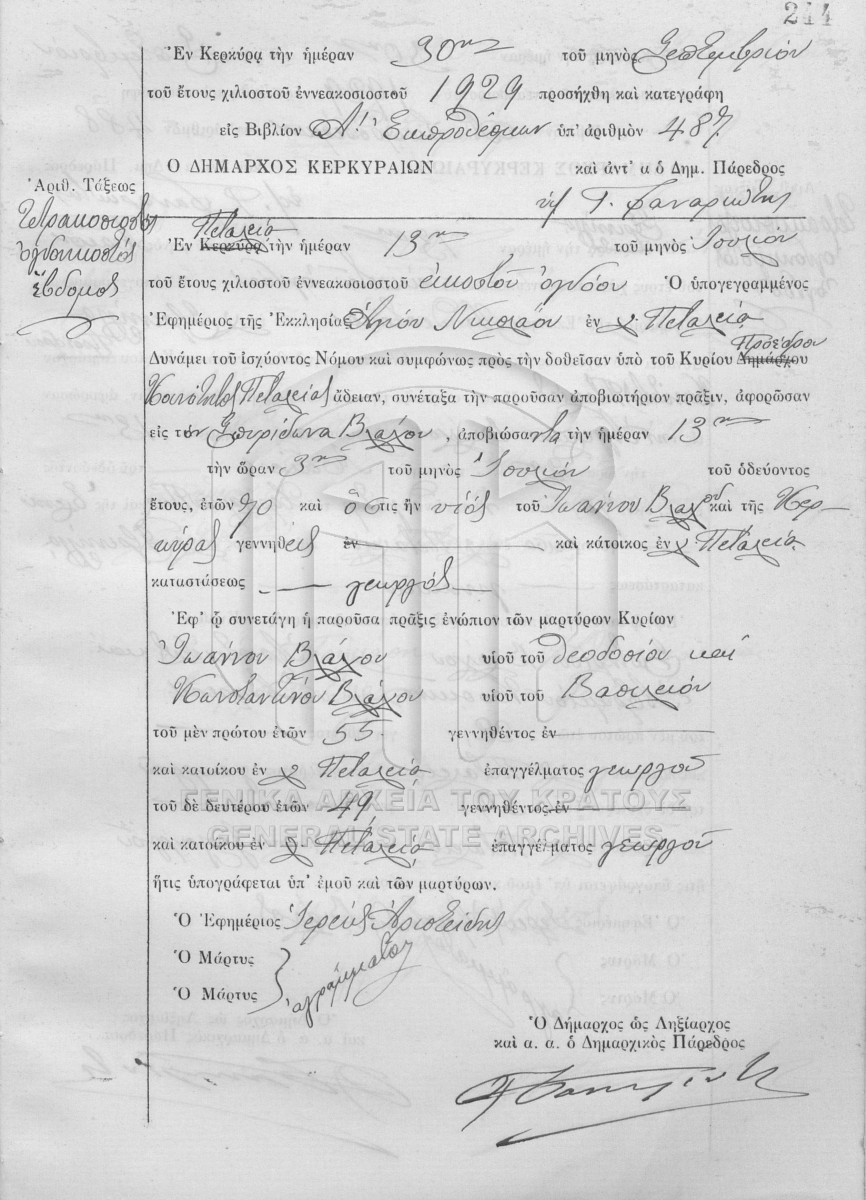 244
Ἐν Κερκύρᾳ τὴν ἡμέραν 30ην τοῦ μηνὸς Σεπτεμβρίου
τοῦ ἔτους χιλιοστοῦ ἐννεακοσιοστοῦ 1929 προσήχθη καὶ κατεγράφη
εἰς Βιβλίον Α! Ἐκπροθέσμων ὑπ' ἀριθμὸν 487
Ο ΔΗΜΑΡΧΟΣ ΚΕΡΚΥΡΑΙΩΝ καὶ ἀντ' α ὁ Δημ. Πάρεδρος
Γ. Φαναριώτης
Ἀριθ. Τάξεως
Τετρακοσιοστὸς
ὀγδοηκοστὸς
ἕβδομος
Πεταλειᾷ
Ἐν Κερκύρᾳ τὴν ἡμέραν 13ην τοῦ μηνὸς Ἰουλίου
τοῦ ἔτους χιλιοστοῦ ἐννεακοσιοστοῦ εἰκοστοῦ ὀγδόου Ὁ ὑπογεγραμμένος
Ἐφημέριος τῆς Ἐκκλησίας Ἁγίου Νικολάου ἐν χ. Πεταλειᾷ
Προέδρου
Δυνάμει τοῦ ἰσχύοντος Νόμου καὶ συμφώνως πρὸς τὴν δοθεῖσαν ὑπὸ τοῦ Κυρίου Δημάρχου
Κοινότητος Πεταλειᾶς ἄδειαν, συνέταξα τὴν παροῦσαν ἀποβιωτήριον πρᾶξιν, ἀφορῶσαν
εἰς τὸν Σπυρίδωνα Βλάχον, ἀποβιώσαντα τὴν ἡμέραν 13ην
τὴν ὥραν 3ην τοῦ μηνὸς Ἰουλίου τοῦ ὁδεύοντος
ἔτους, ἐτῶν 70 καὶ ὅστις ἦν υἱὸς τοῦ Ἰωάννου Βλάχου καὶ τῆς Κερ-
κύρας γεννηθεὶς ἐν καὶ κάτοικος ἐν χ. Πεταλειᾷ
καταστάσεως γεωργὸς
Ἐφ' ᾧ συνετάγη ἡ παροῦσα πρᾶξις ἐνώπιον τῶν μαρτύρων Κυρίων
Ἰωάννου Βλάχου υἱοῦ τοῦ Θεοδοσίου καὶ
Κωνσταντίνου Βλάχου υἱοῦ τοῦ Βασιλείου
τοῦ μὲν πρώτου ἐτῶν 55 γεννηθέντος ἐν
καὶ κατοίκου ἐν χ. Πεταλειᾷ ἐπαγγέλματος γεωργοῦ
τοῦ δὲ δευτέρου ἐτῶν 49 γεννηθέντος ἐν
καὶ κατοίκου ἐν χ. Πεταλειᾷ ἐπαγγέλματος γεωργοῦ
ἥτις ὑπογράφεται ὑπ' ἐμοῦ καὶ τῶν μαρτύρων.
Ὁ Ἐφημέριος Ἱερεὺς Ἀριστείδης
Ὁ Μάρτυς
Ὁ Μάρτυς
ἀγράμματοι
Ὁ Δήμαρχος ὡς Ληξίαρχος
καὶ α. α. ὁ Δημαρχικὸς Πάρεδρος
ΓΕΝΙΚΑ ΑΡΧΕΙΑ ΤΟΥ ΚΡΑΤΟΥΣ
GENERAL STATE ARCHIVES